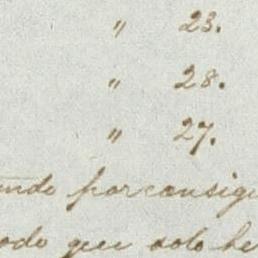 " 23.
" 28.
" 27.
ando por consigu
odo que solo he